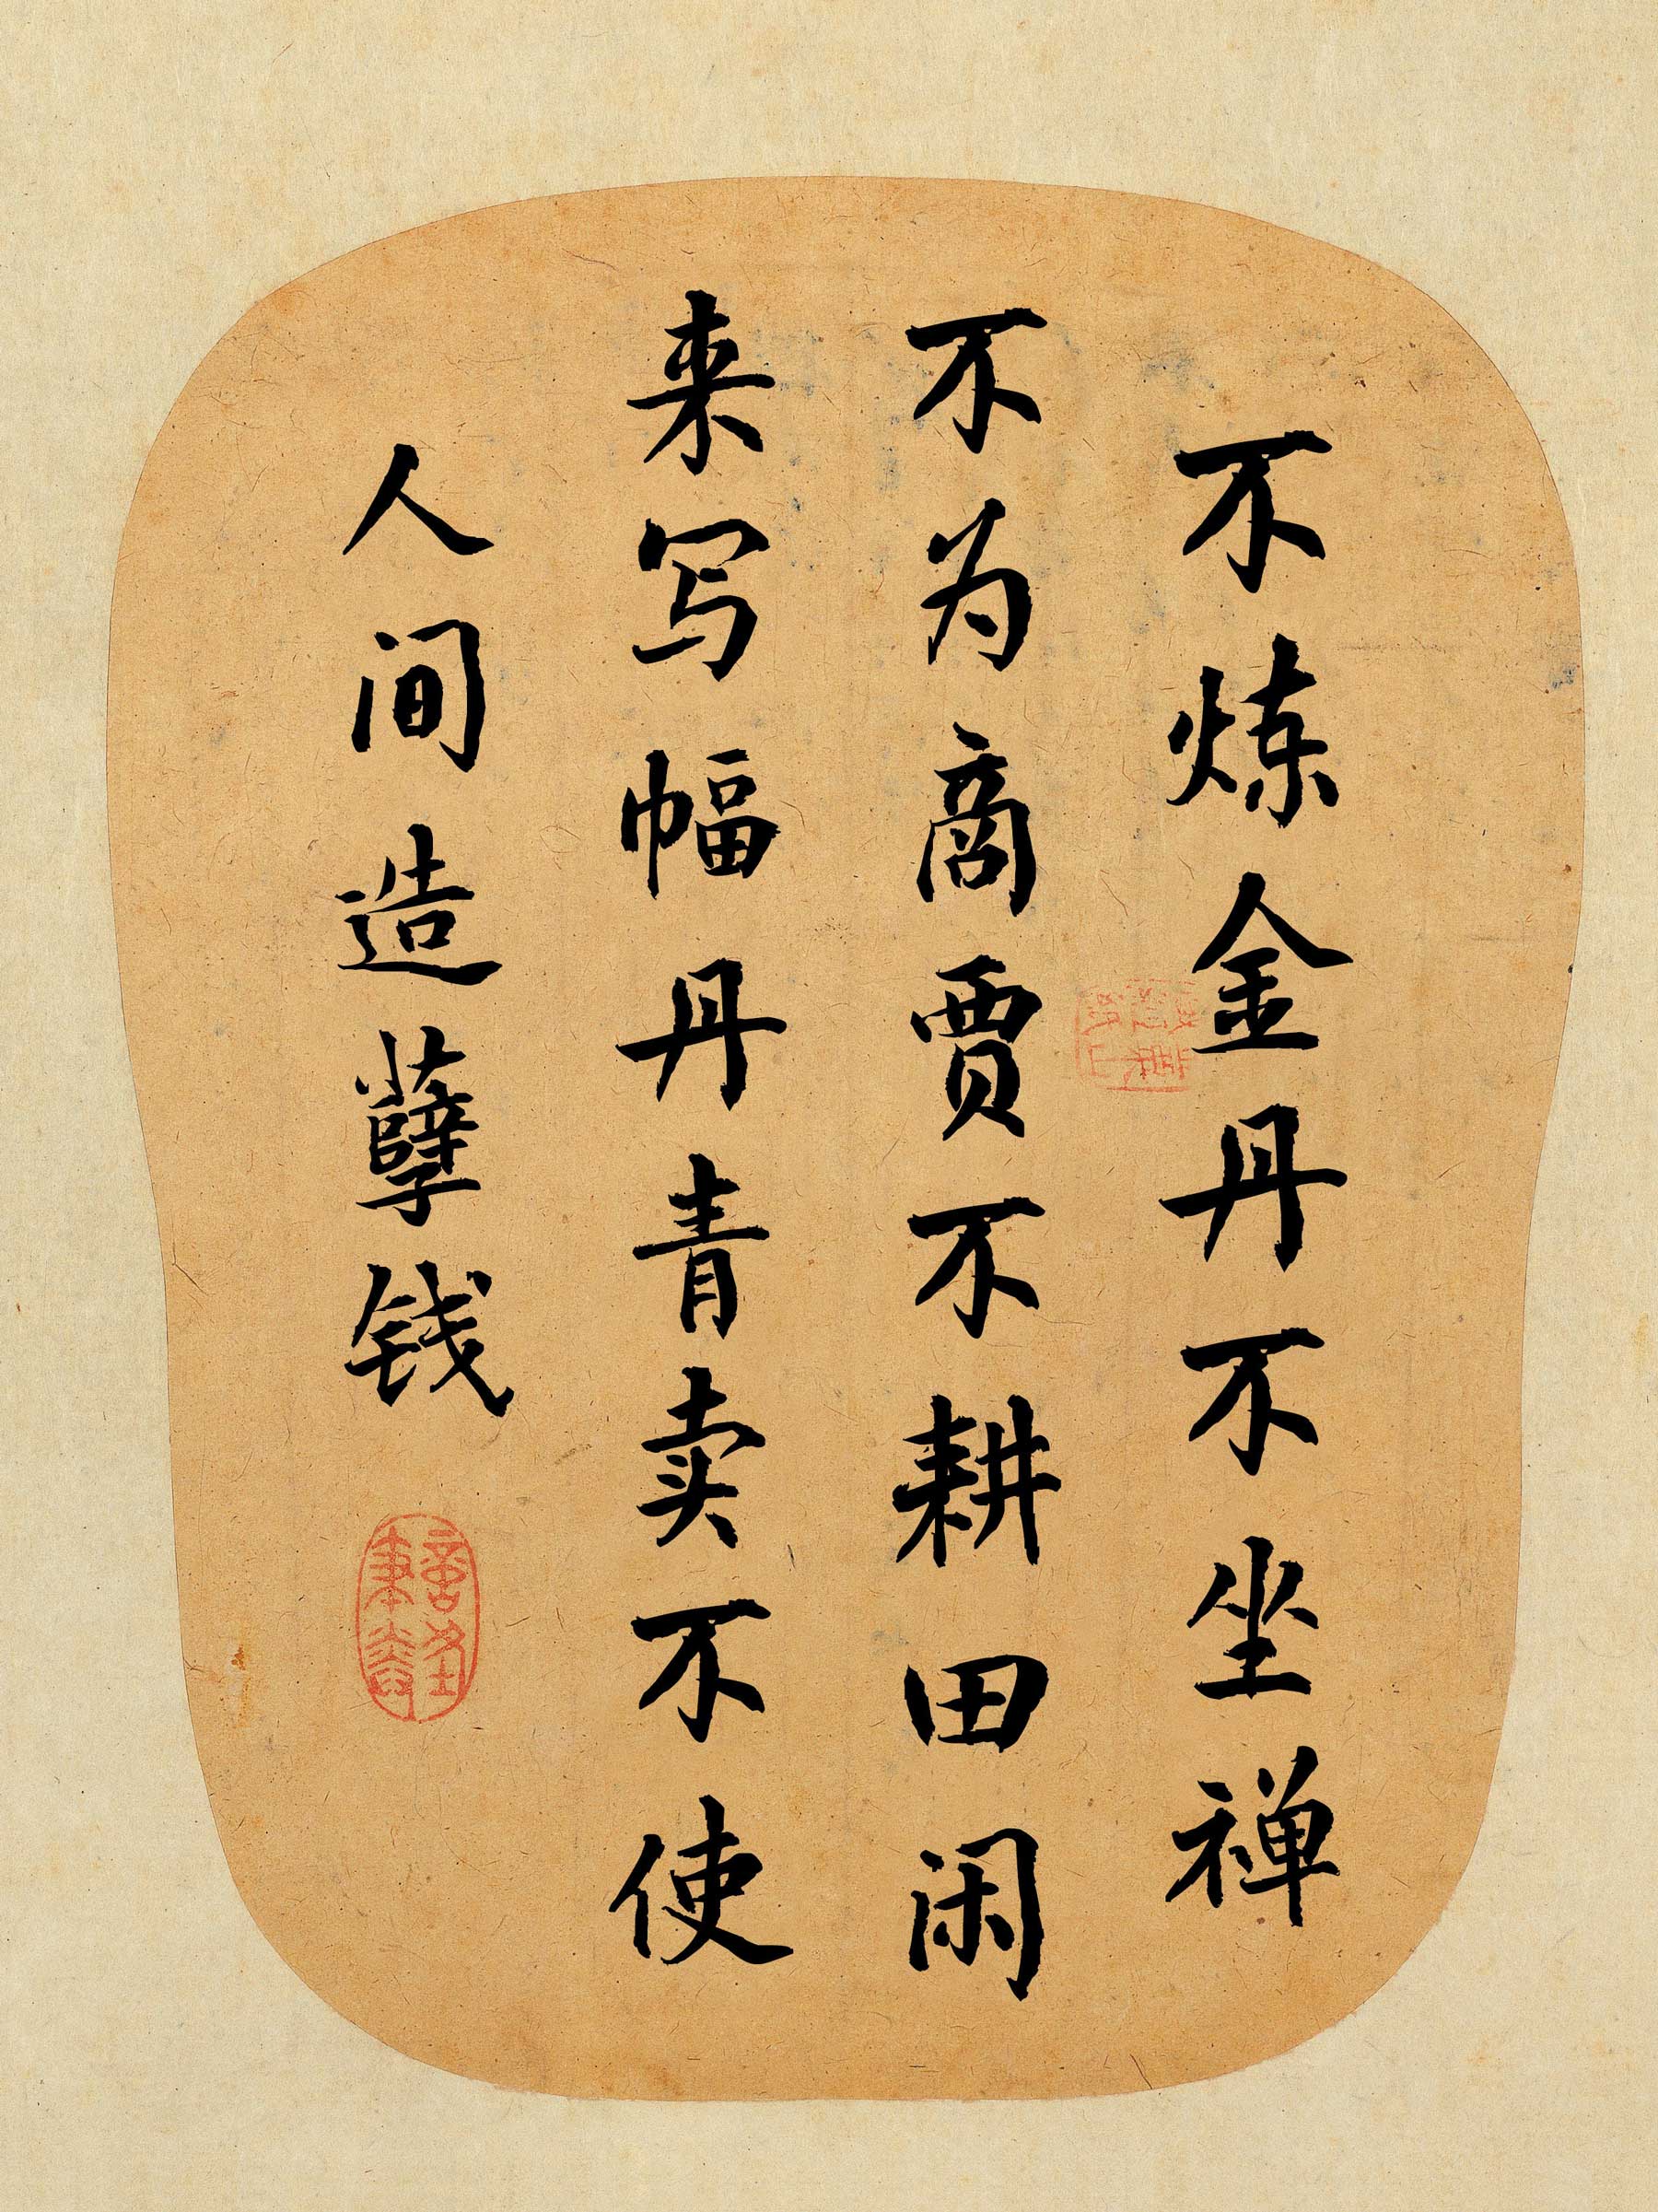 不炼金丹不坐禅
不为商贾不耕田闲
来写幅丹青卖不使
人间造孽钱